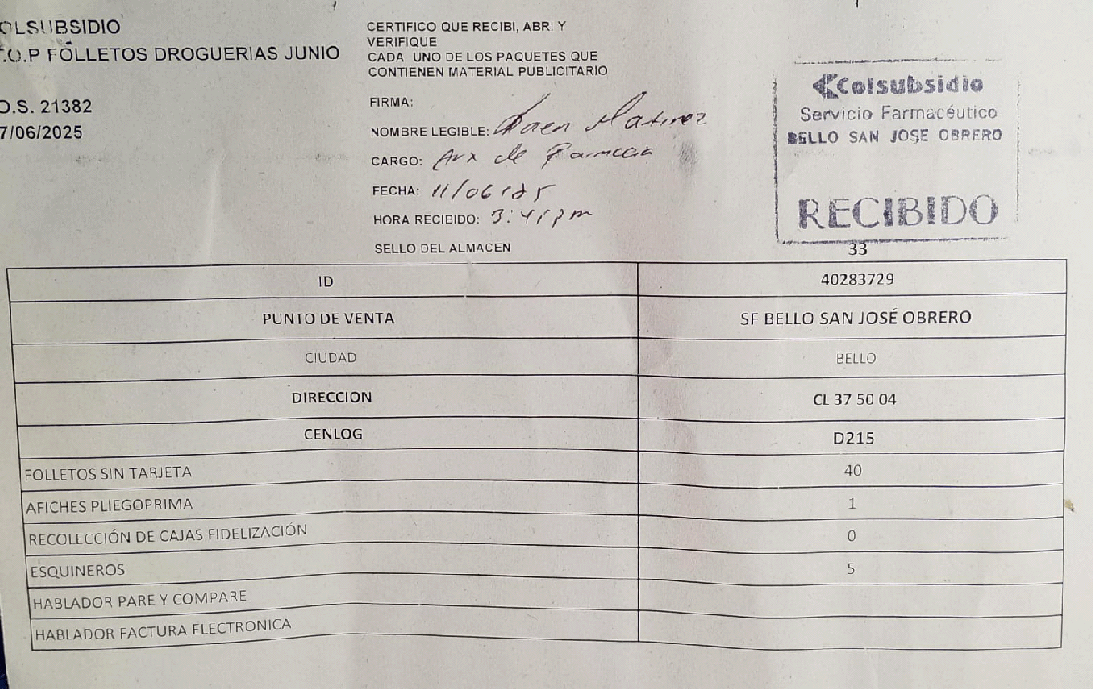 OLSUBSIDIO
.O.P FOLLETOS DROGUERIAS JUNIO
O.S. 21382
7/06/2025
CERTIFICO QUE RECIBI, ABRI Y
VERIFIQUE
CADA UNO DE LOS PAQUETES QUE
CONTIENEN MATERIAL PUBLICITARIO
FIRMA:
NOMBRE LEGIBLE:
CARGO: Aux de
FECHA: 11/06/25
HORA RECIBIDO: 3:41 pm
SELLO DEL ALMACEN
Colsubsidio
Servicio Farmacéutico
BELLO SAN JOSE OBRERO
RECIBIDO
33
ID 40283729
PUNTO DE VENTA SF BELLO SAN JOSÉ OBRERO
CIUDAD BELLO
DIRECCION CL 37 50 04
CENLOG D215
FOLLETOS SIN TARJETA 40
AFICHES PLIEGOPRIMA 1
RECOLECCIÓN DE CAJAS FIDELIZACIÓN 0
ESQUINEROS 5
HABLADOR PARE Y COMPARE
HABLADOR FACTURA ELECTRONICA